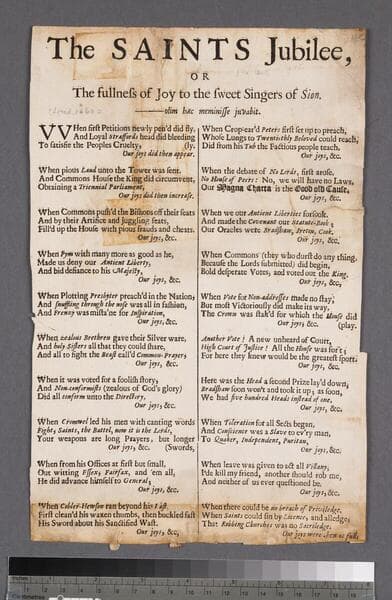 The SAINTS Jubilee,
OR
The fullness of Joy to the sweet Singers of Sion.
olim hæc meminisse juvabit.
VVHen first Petitions newly pen'd did fly,
And Loyal Straffords head did bleeding ly,
To satisfie the Peoples Cruelty,
Our joys did then appear.
When pious Laud unto the Tower was sent,
And Commons House the King did circumvent,
Obtaining a Triennial Parliament,
Our joys did then increase.
When Commons push'd the Bishops off their seats
And by their Artifice and juggling feats,
Fill'd up the House with pious frauds and cheats.
Our joys, &c.
When Pym with many more as good as he,
Made us deny our Antient Liberty,
And bid defiance to his Majesty,
Our joys, &c.
When Plotting Presbyter preach'd in the Nation;
And snuffling through the nose was all in fashion,
And Frenzy was mista'ne for Inspiration,
Our joys, &c.
When zealous Brethren gave their Silver ware,
And holy Sisters all that they could spare,
And all to fight the Beast call'd Common-Prayer;
Our joys, &c.
When it was voted for a foolish story,
And Non-conformists (zealous of God's glory)
Did all conform unto the Directory,
Our joys, &c.
When Cromwel led his men with canting words
Fight, Saints, the Battel, now it is the Lords,
Your weapons are long Prayers, but longer (Swords,
Our joys, &c.
When from his Offices at first but small,
Out witting Essex, Fairfax, and 'em all,
He did advance himself to General,
Our joys, &c.
When Cobler-Hewson ran beyond his Last,
First clean'd his waxen thumbs, then buckled fast
His Sword about his Sanctified Wast.
Our joys, &c.
When Crop-ear'd Peters first set up to preach,
Whose Lungs to Twentiethly Beloved could reach,
Did from his Tub the Factious people teach,
Our joys, &c.
When the debate of No Lords, first arose.
No House of Peers: No, we will have no Laws,
Our Magna Charta is the Good old Cause,
Our joys, &c.
When we our Antient Liberties forsook,
And made the Covenant our Statute-Book;
Our Oracles were Bradshaw, Breton, Cook,
Our joys, &c.
When Commons (they who durst do any thing,
Because the Lords submitted) did begin,
Bold desperate Votes, and voted out the King,
Our joys, &c.
When Vote for Non-addresses made no stay,
But most Victoriously did make its way,
The Crown was stak'd for which the House did (play.
Our joys, &c.
Another Vote! A new unheard of Court,
High Court of Justice! All the House was for't;
For here they knew would be the greatest sport.
Our joys, &c.
Here was the Head a second Prize lay'd down,
Bradshaw soon won't and took it up; as soon,
We had five hundred Heads instead of one.
Our joys, &c.
When Toleration for all Sects began,
And Conscience was a Slave to ev'ry man,
To Quaker, Independent, Puritan,
Our joys, &c.
When leave was given to act all Villany,
I'de kill my friend, another should rob me,
And neither of us ever questioned be.
Our joys, &c.
When there could be no breach of Priviledge,
When Saints could sin by Licence, and alledge;
That Robbing Churches was no Sacriledge.
Our joys were then at full.